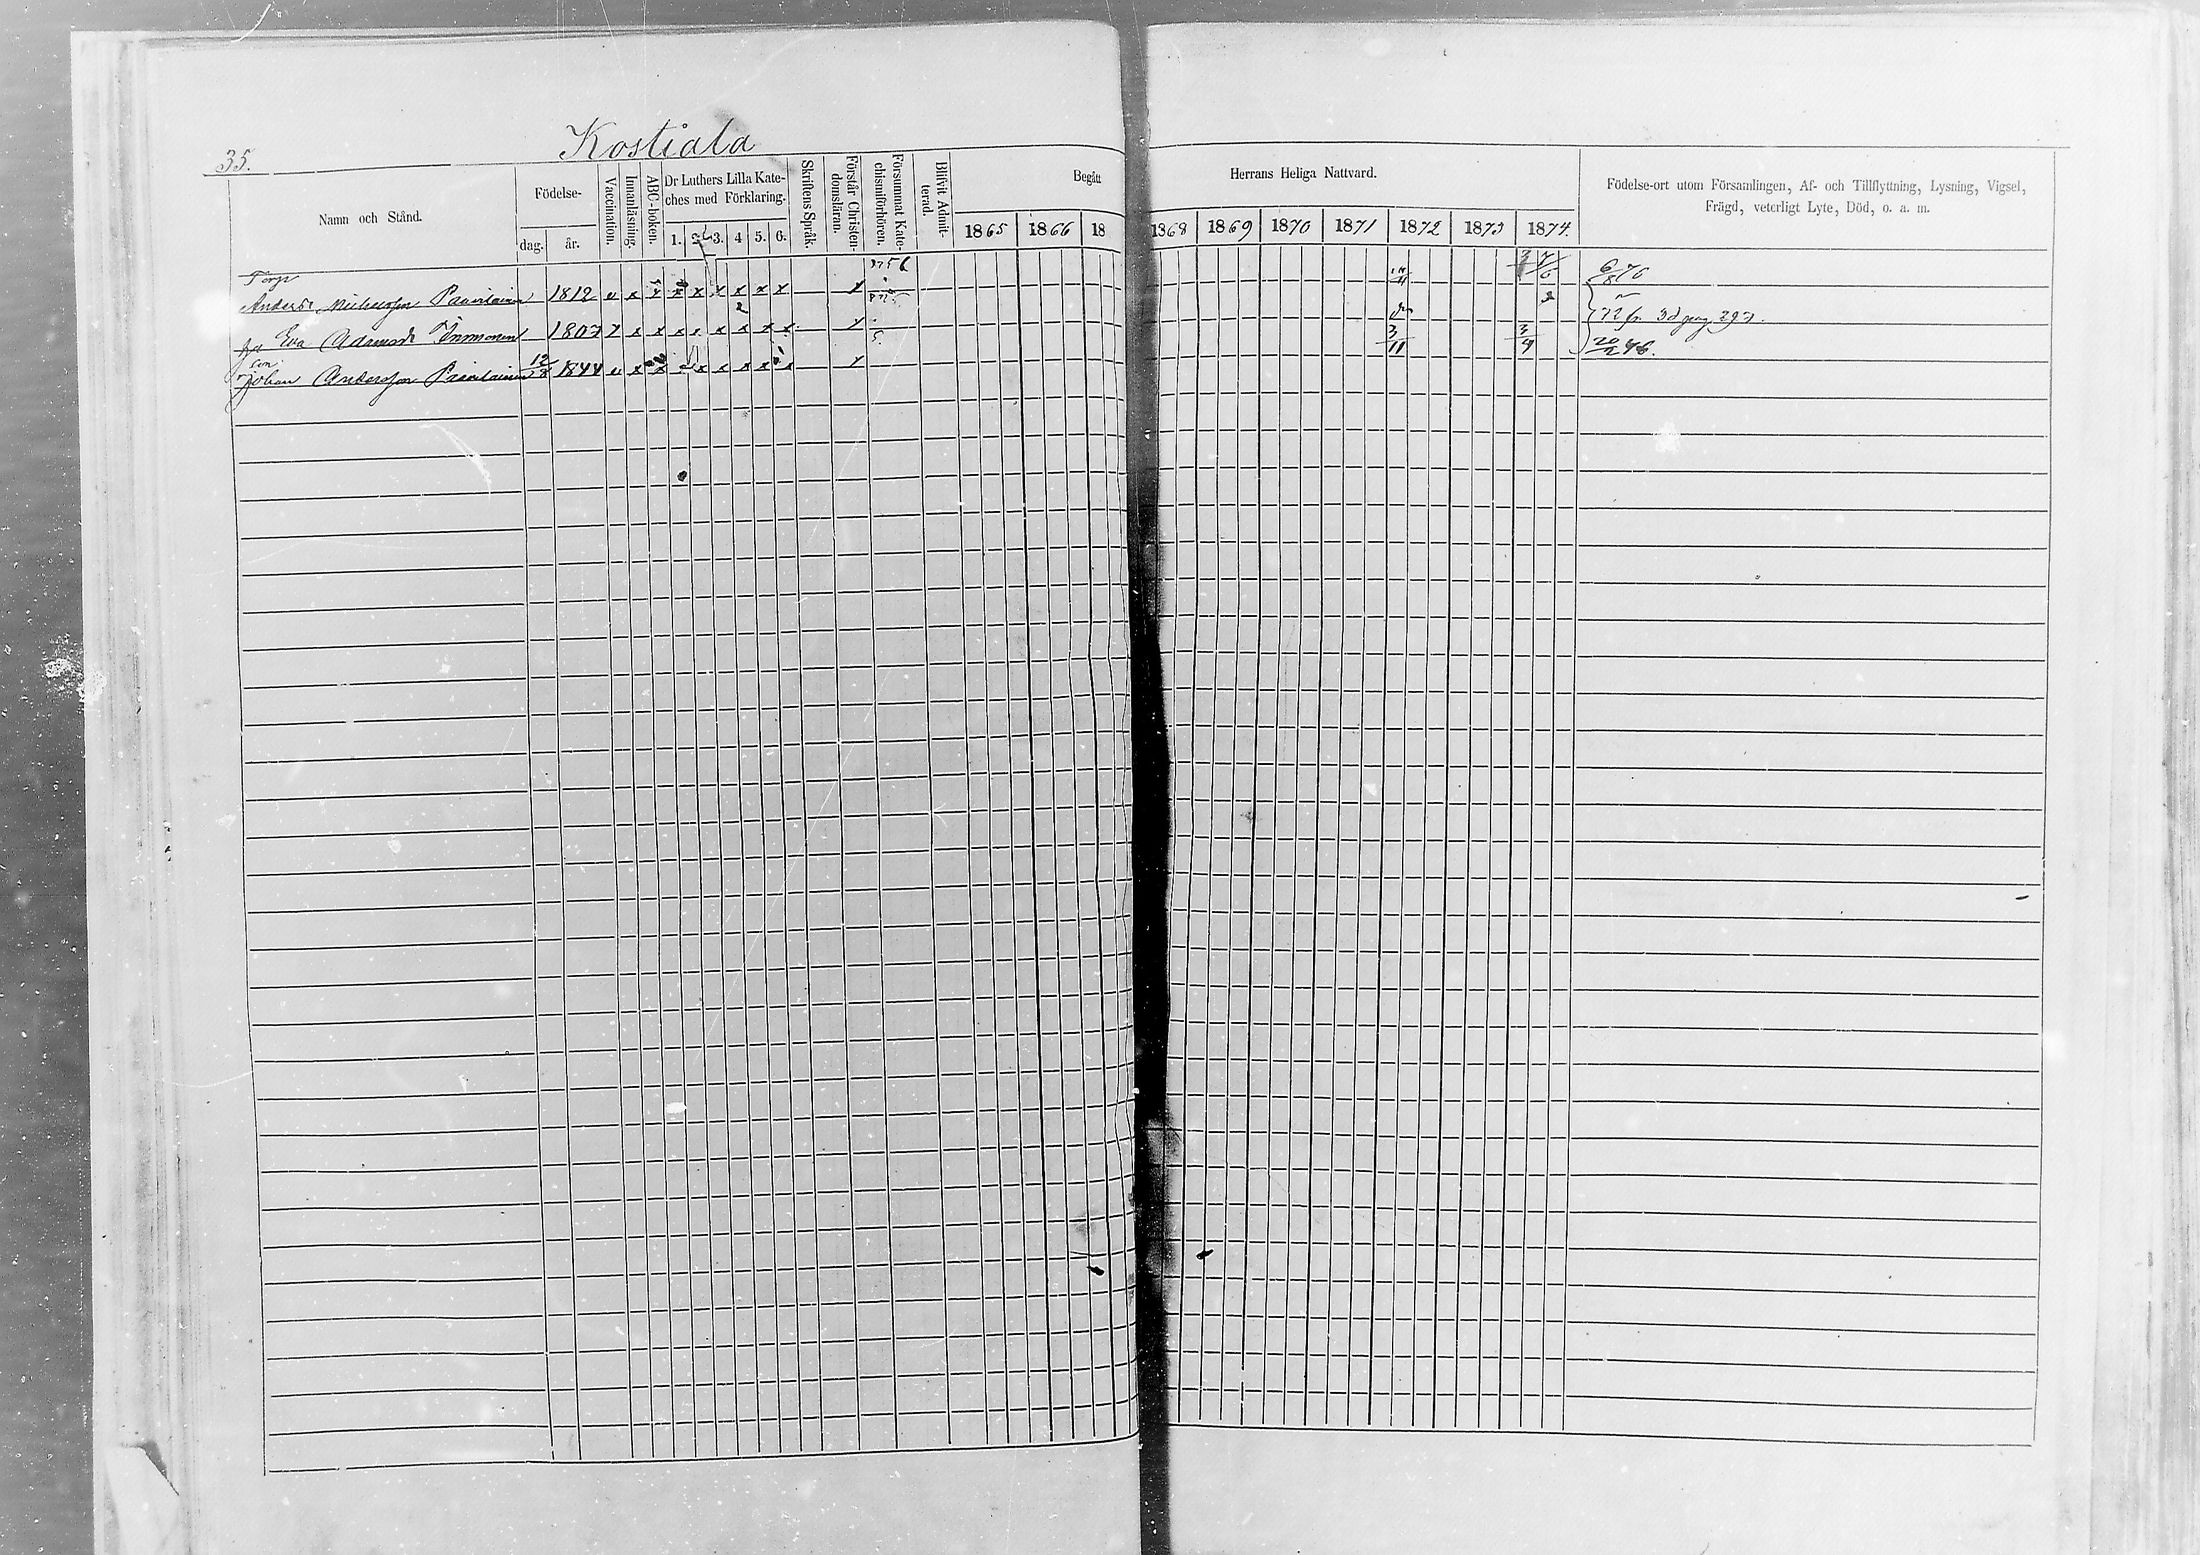 35.
Kostiala
Namn och Stånd.
Födelse-
dag. år.
Vaccination.
Innanläsning.
ABC-boken.
Dr Luthers Lilla Kate-
ches med Förklaring.
1. 2. 3. 4 5. 6.
Skriftens Språk.
Förstår Christen-
domsläran.
Försummat Kate-
chismiförhören.
Blifvit Admit-
terad.
Begått
1865 1866 18
Herrans Heliga Nattvard.
1868 1869 1870 1871 1872 1873 1874.
Födelse-ort utom Församlingen, Af- och Tillflyttning, Lysning, Vigsel,
Frägd, veterligt Lyte, Död, o. a. m.
Torp
Anders Michelsson Paavilainen 1812 v x x x x x x x x x
Eva Adamsdr Immonen 1807 x x x x x x x x x x
Son
Johan Andersson Paavilainen 12/8 1844 v x x x x x x x
3/11 3/4